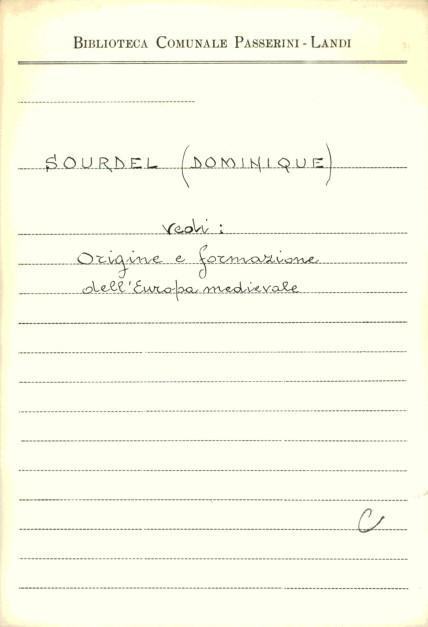 BIBLIOTECA COMUNALE PASSERINI - LANDI
SOURDEL (DOMINIQUE)
vedi :
Origine e formazione
dell'Europa medievale
C